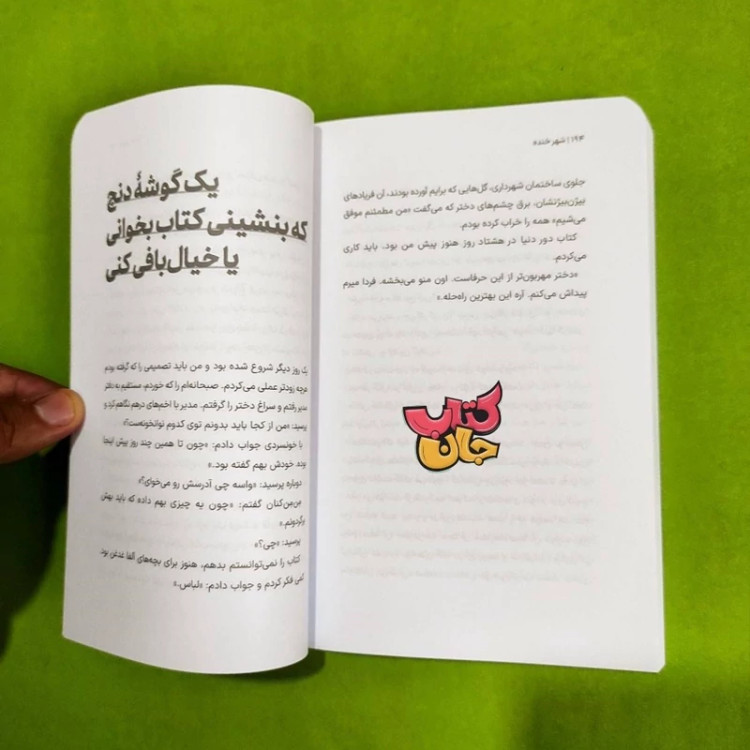 ۱۹۴ | شهر خنده
جلوی ساختمان شهرداری، گل‌هایی که برایم آورده بودند، آن فریادهای
بیژن‌بیژنشان، برق چشم‌های دختر که می‌گفت «من مطمئنم موفق
می‌شیم» همه را خراب کرده بودم.
کتاب دور دنیا در هشتاد روز هنوز پیش من بود. باید کاری
می‌کردم.
«دختر مهربون‌تر از این حرفاست. اون منو می‌بخشه. فردا میرم
پیداش می‌کنم. آره این بهترین راه‌حله.»
کتاب
جان
یک گوشهٔ دنج
که بنشینی کتاب بخوانی
یا خیال‌بافی کنی
یک روز دیگر شروع شده بود و من باید تصمیمی را که گرفته بودم
هرچه زودتر عملی می‌کردم. صبحانه‌ام را که خوردم، مستقیم به دفتر
مدیر رفتم و سراغ دختر را گرفتم. مدیر با اخم‌های درهم نگاهم کرد و
پرسید: «من از کجا باید بدونم توی کدوم نوانخونه‌ست؟»
با خونسردی جواب دادم: «چون تا همین چند روز پیش اینجا
بوده. خودش بهم گفته بود.»
دوباره پرسید: «واسه چی آدرسش رو می‌خوای؟»
من‌من‌کنان گفتم: «چون یه چیزی بهم داده که باید بهش
برگردونم.»
پرسید: «چی؟»
کتاب را نمی‌توانستم بدهم، هنوز برای بچه‌های الفا غدغن بود.
کمی فکر کردم و جواب دادم: «لباس.»